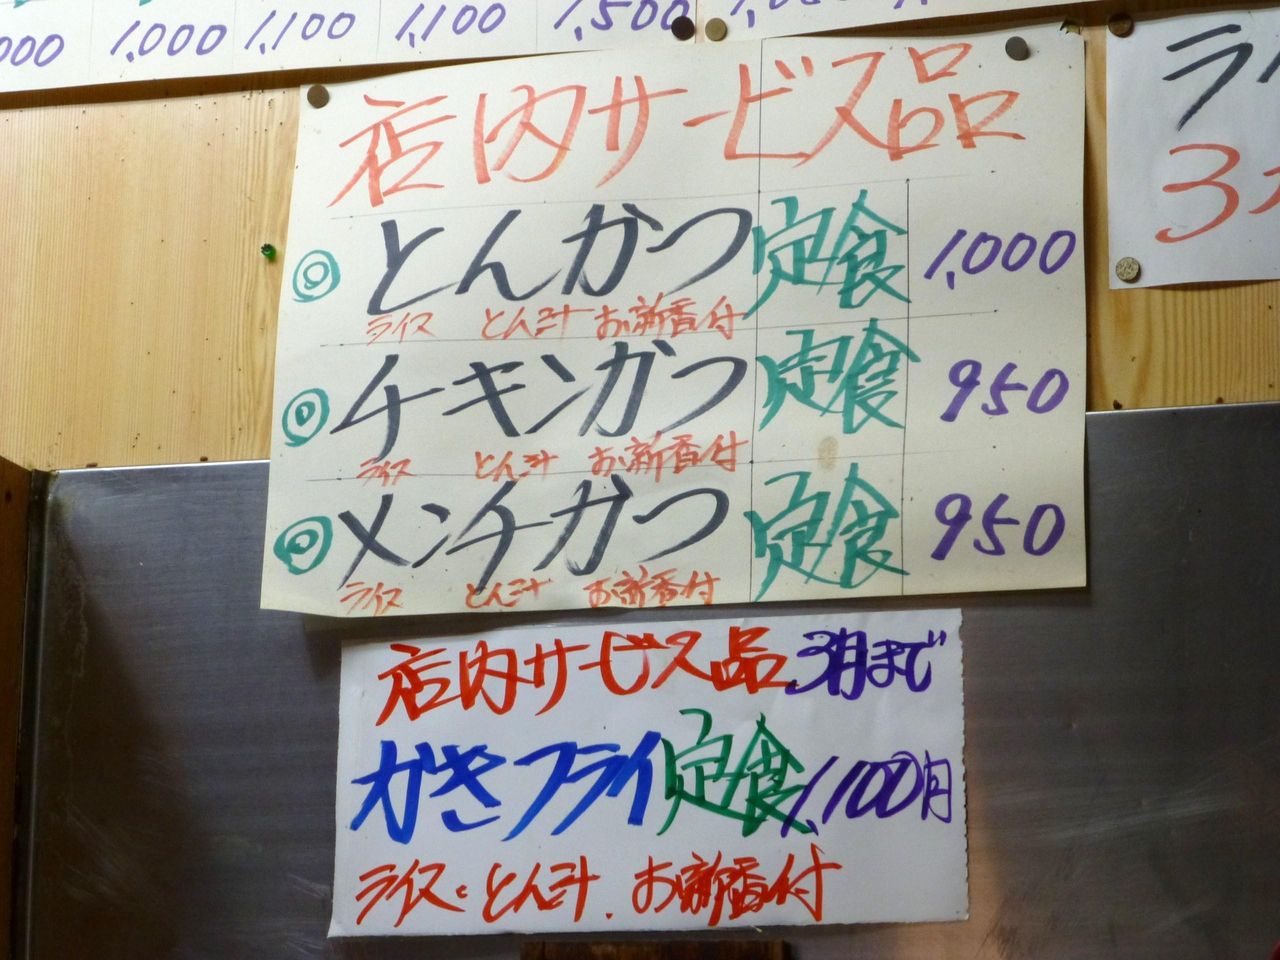 000 1,000 1,100 1,100 1,500
店内サービス品
◎ とんかつ定食 1,000
ライス とん汁 お新香付
◎ チキンかつ定食 950
ライス とん汁 お新香付
◎ メンチかつ定食 950
ライス とん汁 お新香付
店内サービス品 3月まで
かきフライ定食 1,100円
ライス、とん汁、お新香付
ラ
3